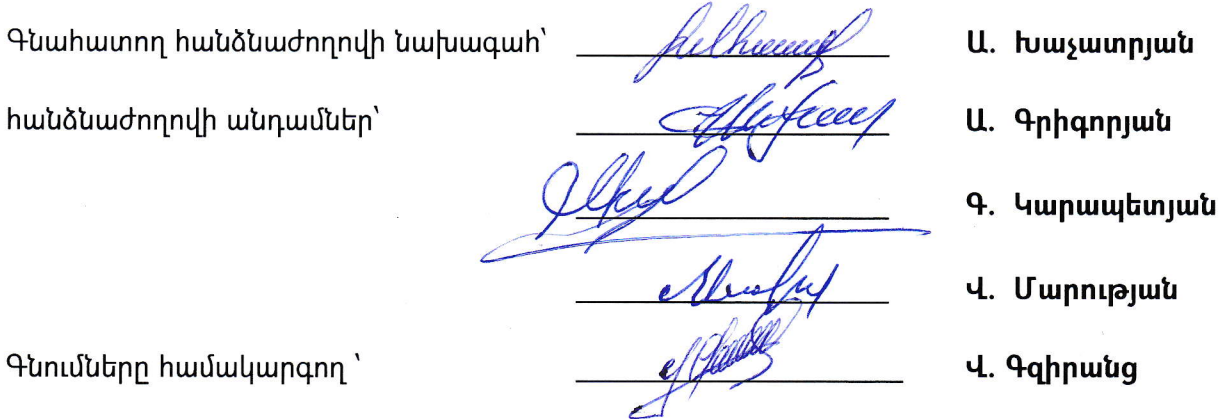 Գնահատող հանձնաժողովի նախագահ՝ Ա. Խաչատրյան
հանձնաժողովի անդամներ՝ Ա. Գրիգորյան
Գ. Կարապետյան
Վ. Մարության
Գնումները համակարգող ՝ Վ. Գզիրանց